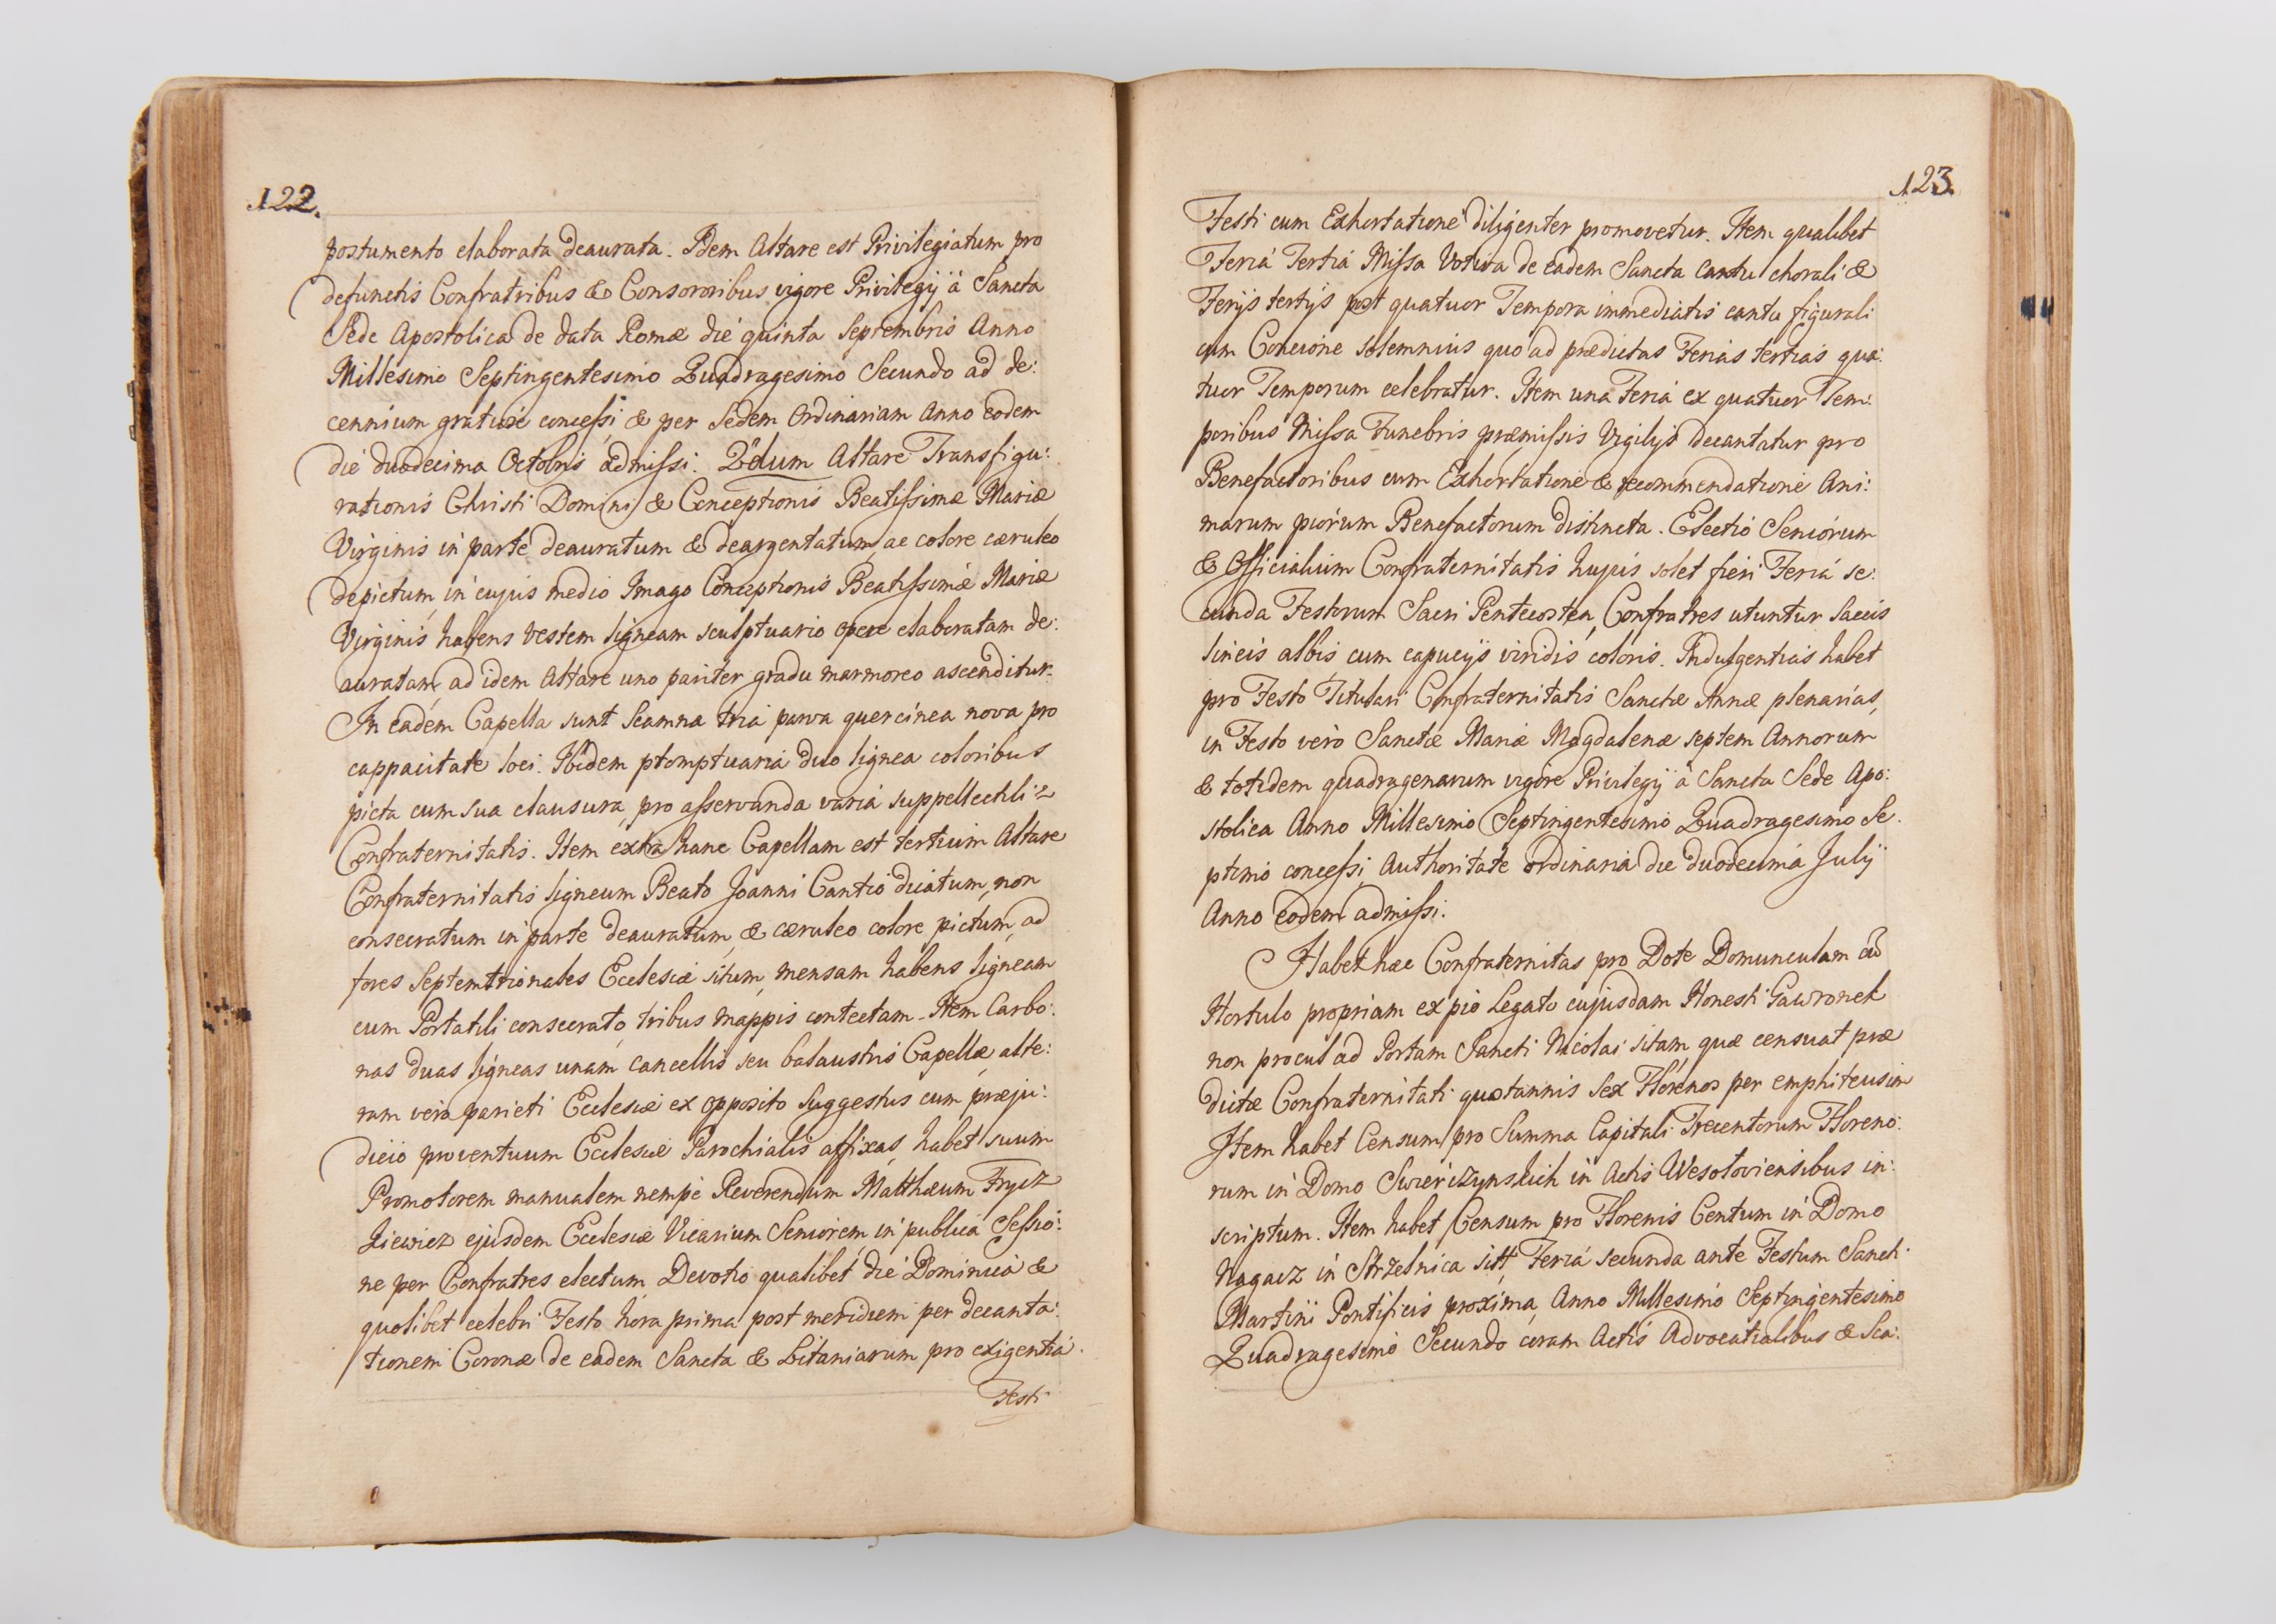 122.
postumento elaborata deaurata. Idem Altare est Privilegiatum pro
defunctis Confratribus & Consororibus vigore Privilegij à Sancta
Sede Apostolica de data Romæ die quinta Septembris Anno
Millesimo Septingentesimo Quadragesimo Secundo ad de:
cennium gratiose concessi & per Sedem Ordinariam Anno eodem
die duodecima Octobris admissi. 2dum Altare Transfigu:
rationis Christi Domini & Conceptionis Beatissimæ Mariæ
Virginis in parte deauratum & deargentatum, ac colore cæruleo
depictum, in cujus medio Imago Conceptionis Beatissimæ Mariæ
Virginis habens vestem ligneam sculptuario opere elaboratam de:
auratam, ad idem Altare uno pariter gradu marmoreo ascenditur.
In eadem Capella sunt Scamna tria parva quercinea nova pro
cappacitate loci. Ibidem ptomptuaria duo lignea coloribus
picta cum sua clausura, pro asservanda varia suppellectili
Confraternitatis. Item extra hanc Capellam est tertium Altare
Confraternitatis ligneum Beato Joanni Cantio dicatum, non
consecratum in parte deauratum, & cæruleo colore pictum, ad
fores Septemtrionales Ecclesiæ situm, mensam habens ligneam
cum Portatili consecrato, tribus mappis contectam. Item Carbo:
nas duas ligneas unam cancellis seu balaustris Capellæ, alte:
ram vero parieti Ecclesiæ ex opposito Suggestus cum præju:
dicio proventuum Ecclesiæ Parochialis affixas, habet suum
Promotorem manualem nempe Reverendum Matthæum Frycz
kiewicz ejusdem Ecclesiæ Vicarium Seniorem, in publica Sessio:
ne per Confratres electum. Devotio qualibet die Dominica &
quolibet celebri Festo hora prima post meridiem per decanta:
tionem Coronæ de eadem Sancta & Litaniarum pro exigentia
Festi
123.
Festi cum Exhortatione diligenter promovetur. Item qualibet
Feria Tertia Missa Votiva de eadem Sancta cantu chorali &
Ferijs tertijs post quatuor Tempora immediatis cantu figurali
cum Concione solemnius quo ad prædictas Ferias tertias qua:
tuor Temporum celebratur. Item una Feria ex quatuor Tem:
poribus Missa Funebris præmissis Vigilijs decantatur pro
Benefactoribus cum Exhortatione & recommendatione Ani:
marum piorum Benefactorum distincta. Electio Seniorum
& Officialium Confraternitatis hujus solet fieri Feria se:
cunda Festorum Sacri Pentecostes, Confratres utuntur saccis
lineis albis cum capucijs viridis coloris. Indulgentias habet
pro Festo Titulari Confraternitatis Sanctæ Annæ plenarias,
in Festo vero Sanctæ Mariæ Magdalenæ septem Annorum
& totidem quadragenarum vigore Privilegij à Sancta Sede Apo:
stolica Anno Millesimo Septingentesimo Quadragesimo Se
ptimo concessi Authoritate ordinaria die duodecima Julij
Anno eodem admissi.
Habet hæc Confraternitas pro Dote Domunculam cũ
Hortulo propriam ex pio Legato cujusdam Honesti Gawronek
non procul ad Portam Sancti Nicolai sitam, quæ censuat præ
dictæ Confraternitati quotannis Sex Florenos per emphiteusim
Item habet Censum pro Summa Capitali Trecentorum Floreno:
rum in Domo Swierczynskich in Actis Wesołoviensibus in:
scriptum. Item habet Censum pro Florenis Centum in Domo
Nagacz in Strzelnica sitt, Feria secunda ante Festum Sancti
Martini Pontificis proxima, Anno Millesimo Septingentesimo
Quadragesimo Secundo coram Actis Advocatialibus & Sca: